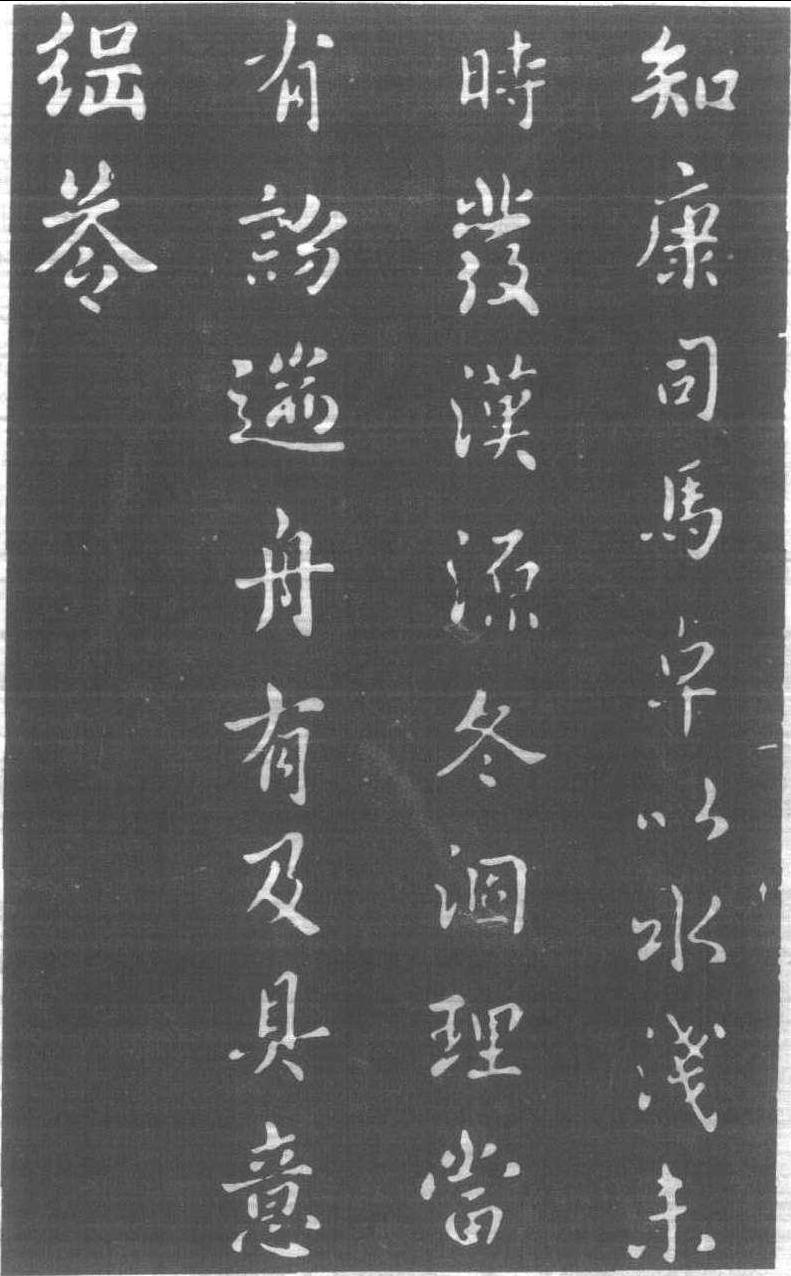 知康司馬卒以水淺未
時發漢源冬涸理當
有詣遄舟有及具意